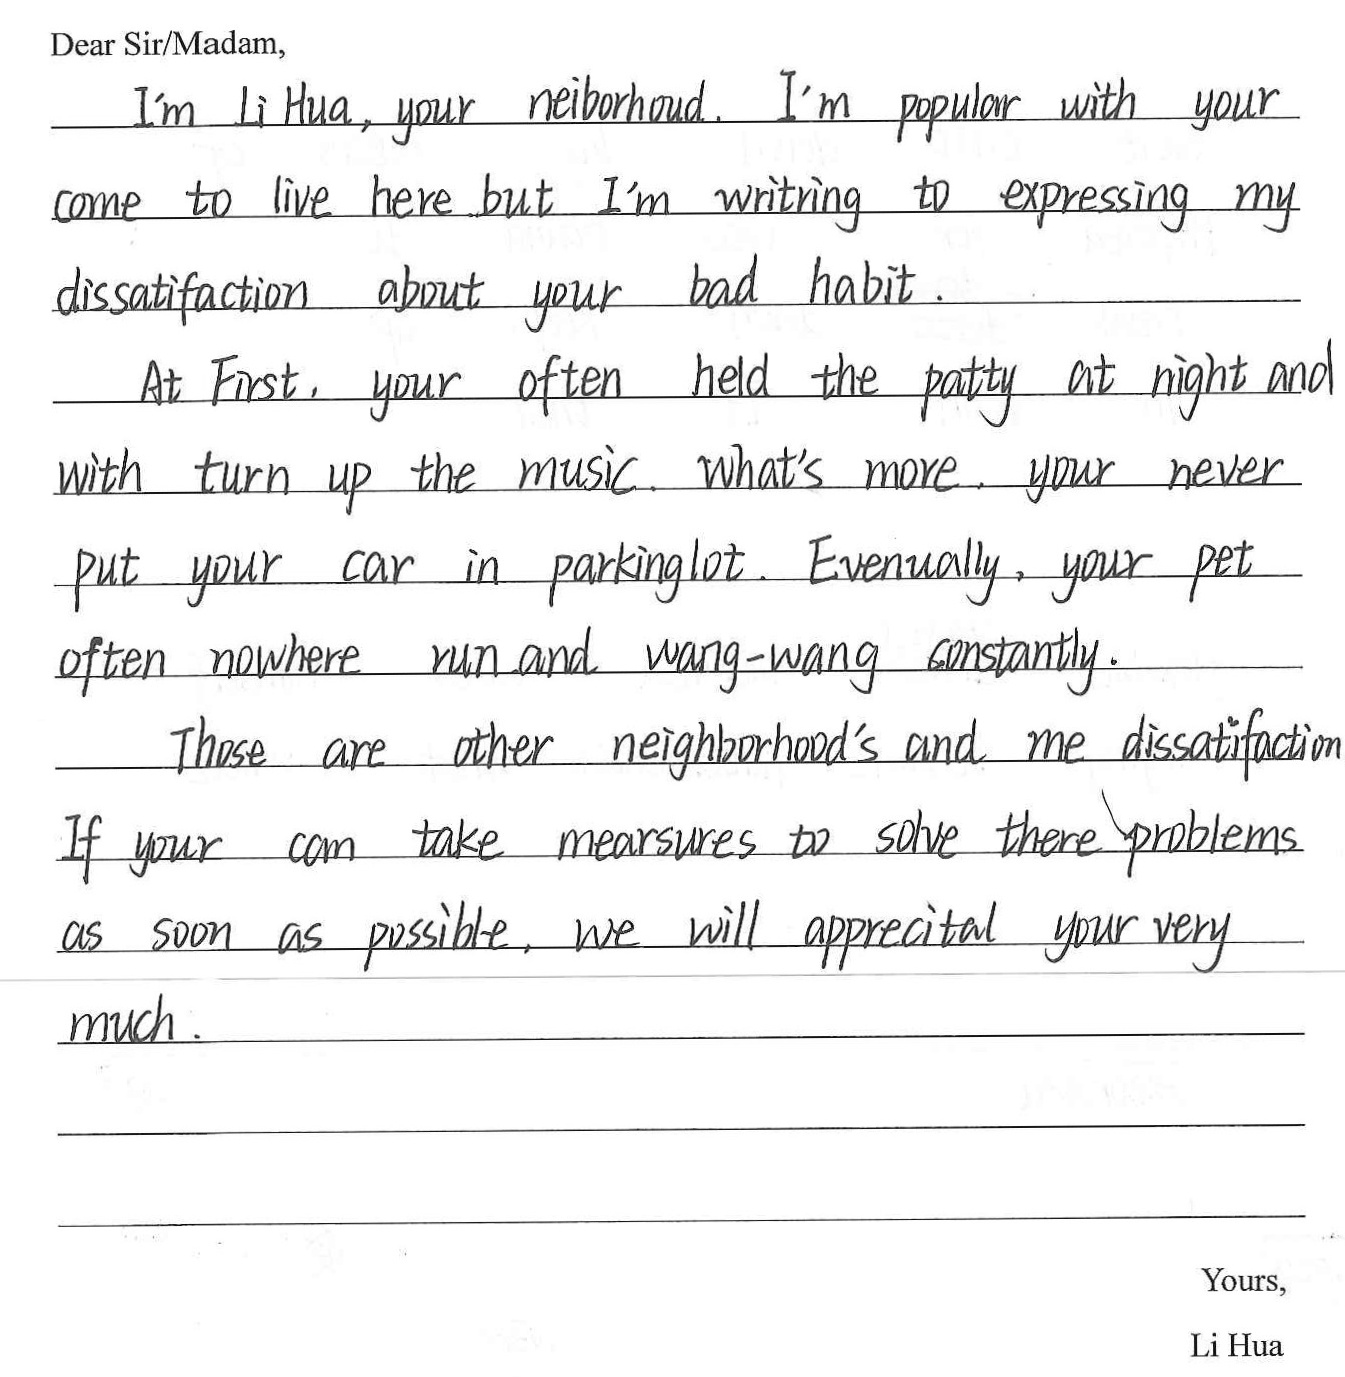 Dear Sir/Madam,
I'm Li Hua, your neiborhoud. I'm popular with your
come to live here but I'm writring to expressing my
dissatifaction about your bad habit.
At First, your often held the patty at night and
with turn up the music. What's more, your never
put your car in parkinglot. Evenually, your pet
often nowhere run and wang-wang constantly.
Those are other neighborhood's and me dissatifaction
If your can take mearsures to solve there problems
as soon as possible, we will apprecital your very
much.
Yours,
Li Hua